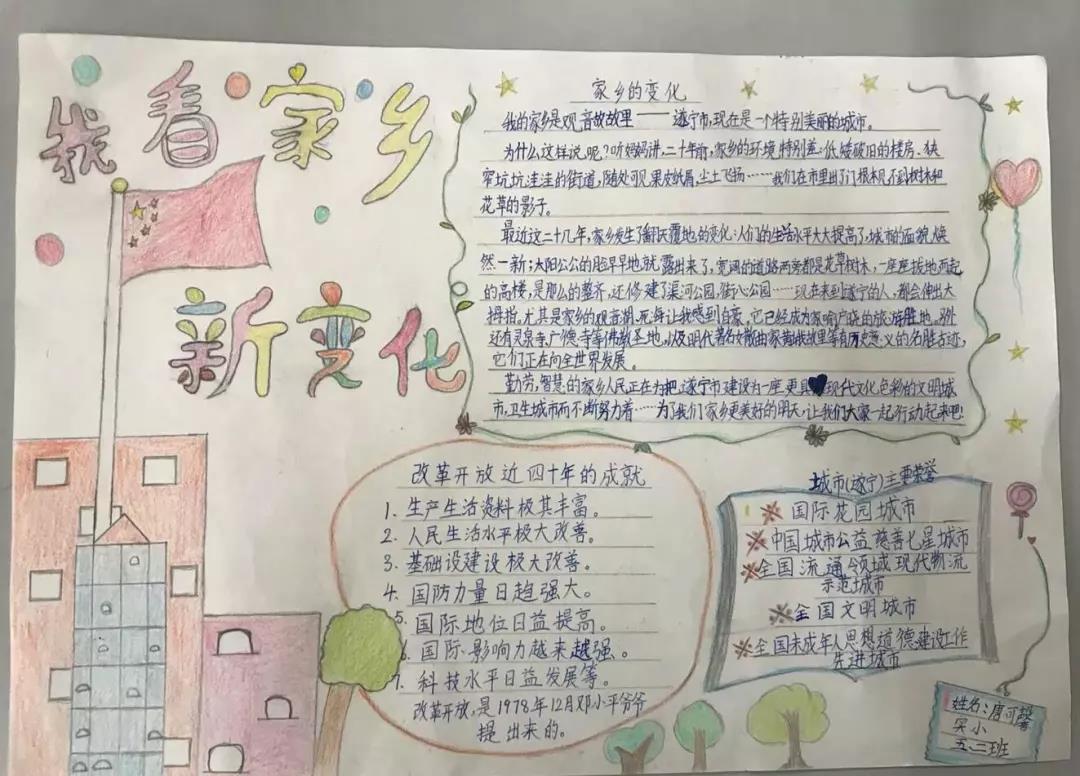 我看家乡
新变化
家乡的变化
我的家乡是观音故里——遂宁市,现在是一个特别美丽的城市。
为什么这样说呢?听妈妈讲,二十年前,家乡的环境特别差:低矮破旧的楼房、狭
窄坑坑洼洼的街道,随处可见果皮纸屑,尘土飞扬……我们在市里出了门根本见不到树木和
花草的影子。
最近这二十几年,家乡发生了翻天覆地的变化:人们的生活水平大大提高了,城市的面貌焕
然一新;太阳公公的脸早早地就露出来了,宽阔的道路两旁都是花草树木,一座座拔地而起
的高楼,是那么的整齐,还修建了渠河公园,街心公园……现在来到遂宁的人,都会伸出大
拇指,尤其是家乡的观音湖,死海让我感到自豪,它已经成为家喻户晓的旅游胜地,另外
还有灵泉寺广德寺等佛教圣地,以及明代著名文散曲家黄娥故里等有历史意义的名胜古迹,
它们正在向全世界发展。
勤劳、智慧的家乡人民正在为把遂宁市建设为一座更具现代文化色彩的文明城
市,卫生城市而不断努力着……为了我们家乡更美好的明天,让我们大家一起行动起来吧!
改革开放近四十年的成就
1. 生产生活资料极其丰富。
2. 人民生活水平极大改善。
3. 基础设建设极大改善。
4. 国防力量日趋强大。
5. 国际地位日益提高。
6. 国际影响力越来越强。
7. 科技水平日益发展等。
改革开放,是1978年12月邓小平爷爷
提出来的。
城市(遂宁)主要荣誉
※ 国际花园城市
※ 中国城市公益慈善七星城市
※ 全国流通领域现代物流
示范城市
※ 全国文明城市
※ 全国未成年人思想道德建设工作
先进城市
姓名:唐可馨
小
五.二班